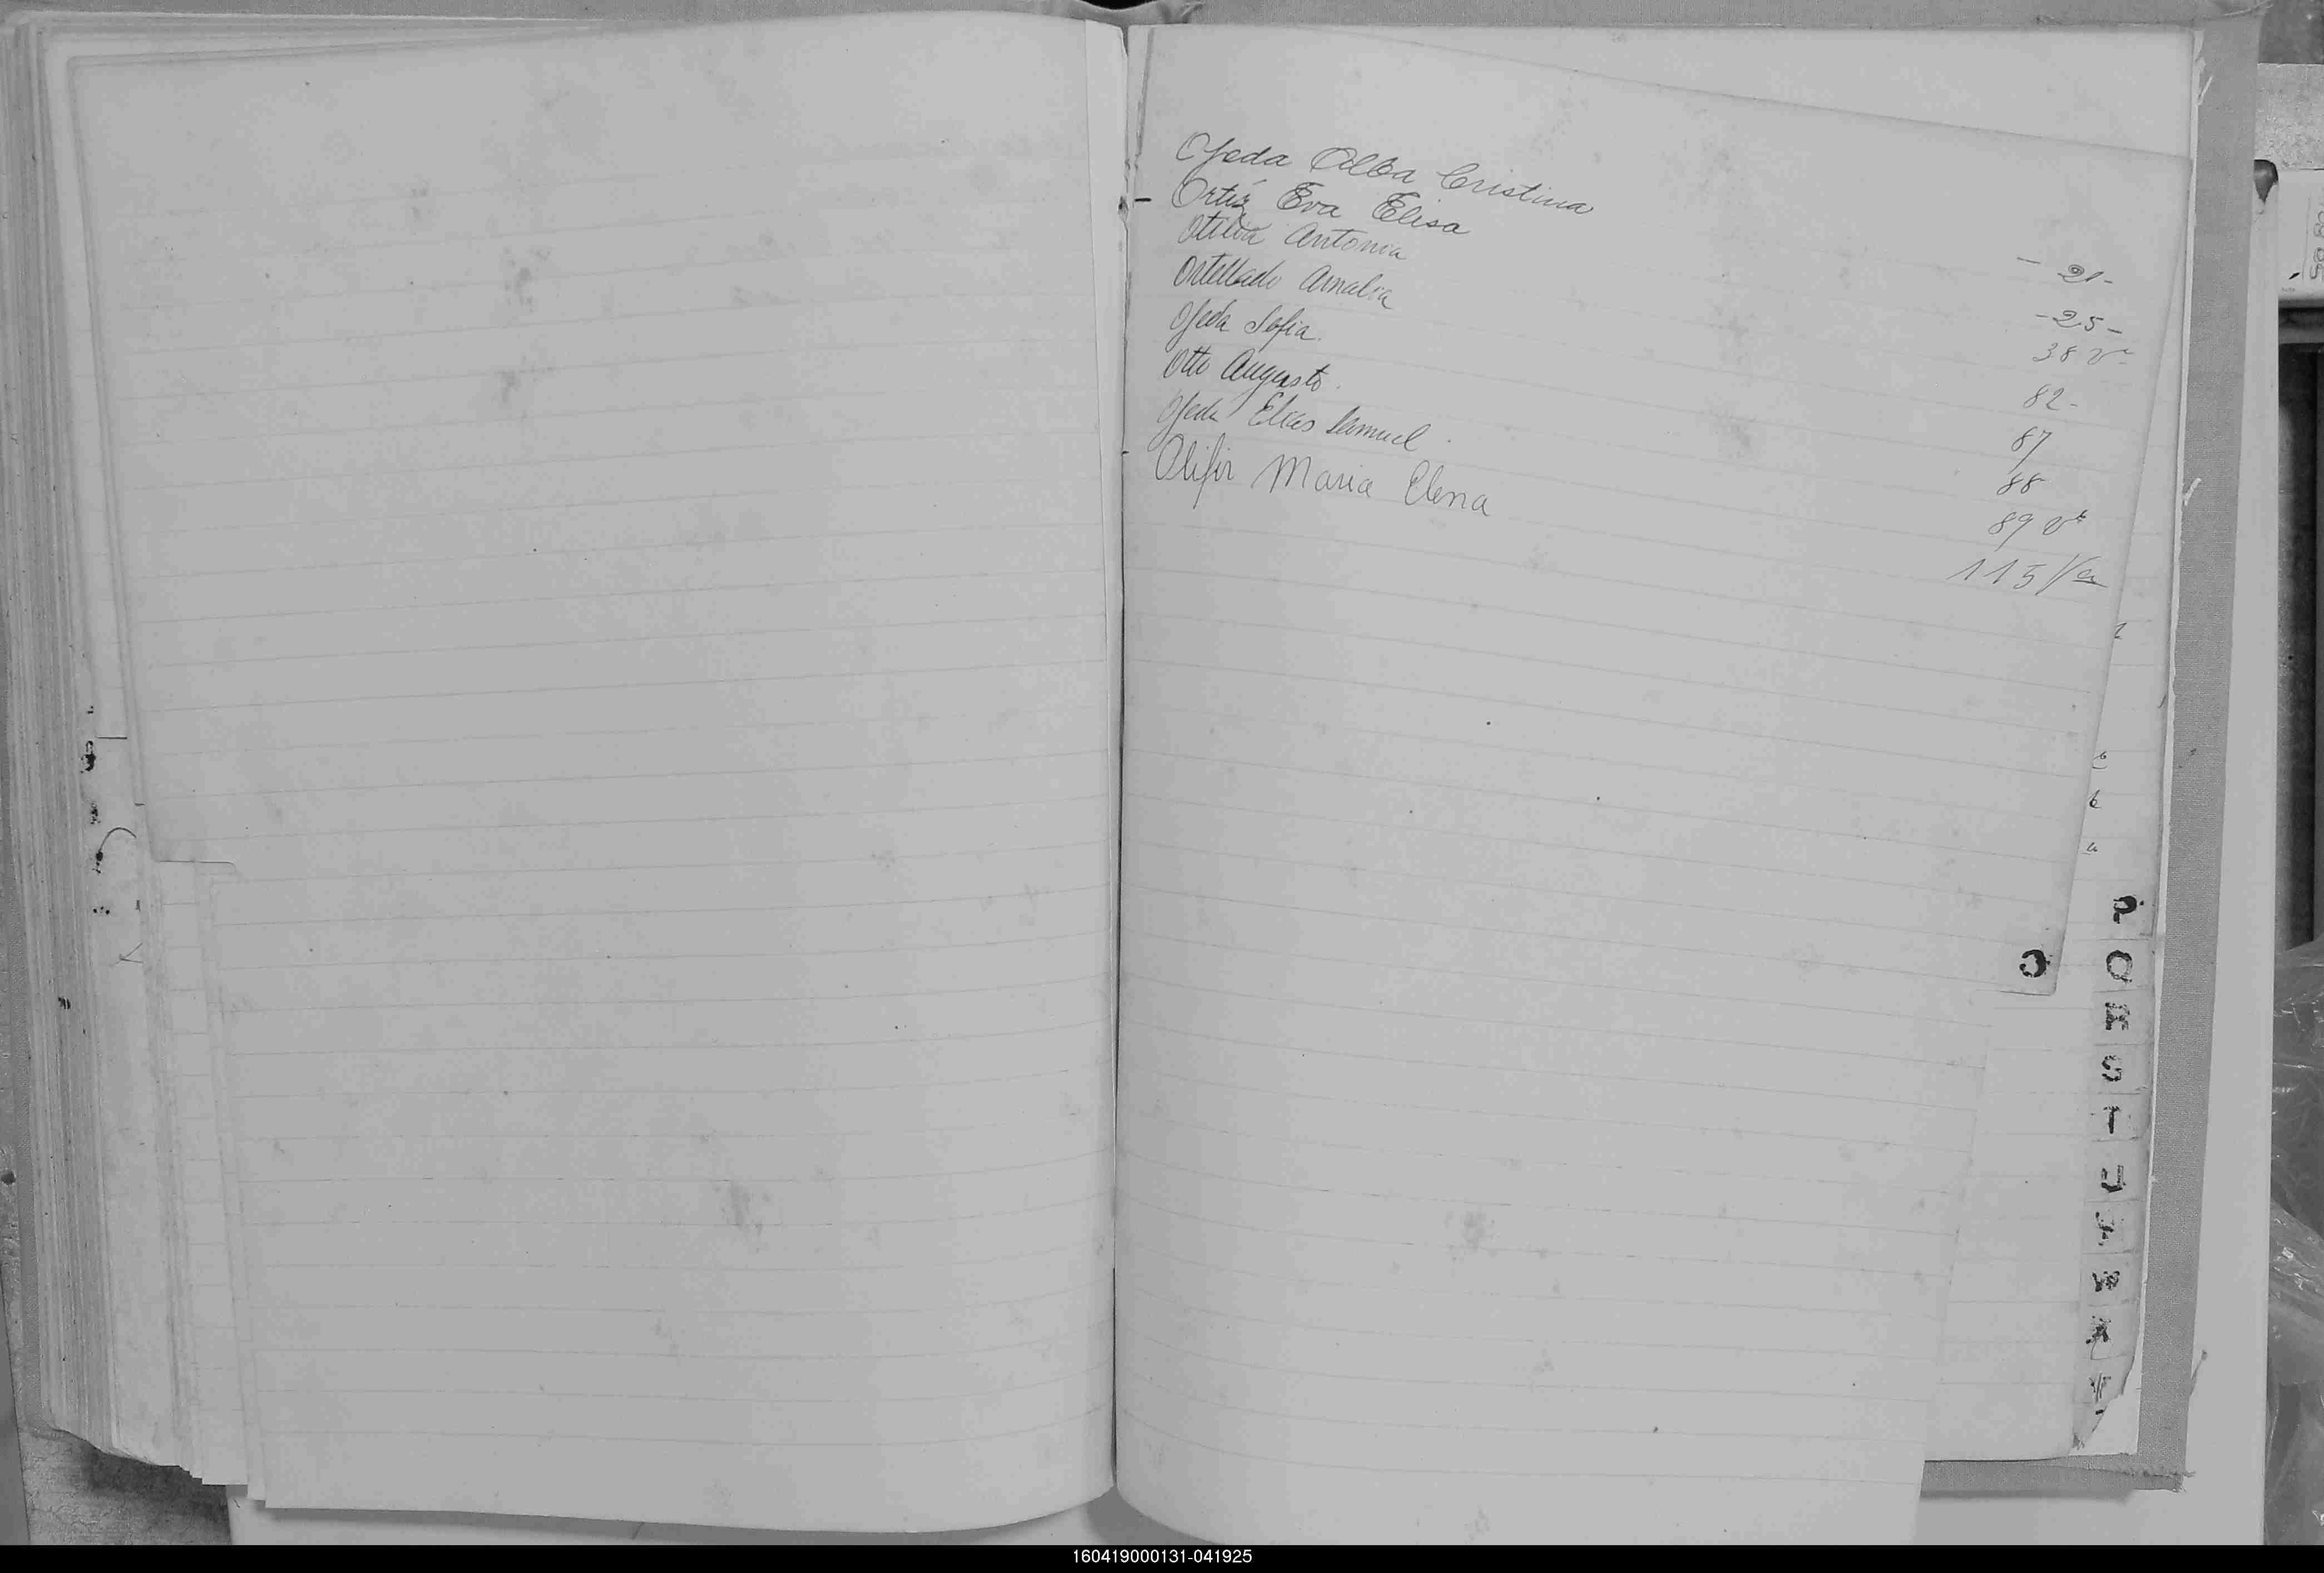 Ojeda Alba Cristina - 21-
Ortíz Eva Elisa -25-
Otilia Antonia 38 vᵗᵃ
Ortellado Amalia 82-
Ojeda Sofia. 87
Otto Augusto. 88
Ojeda Elias Samuel. 89 vᵗᵃ
Olifir Maria Elena 115 Vta
O
P
Q
R
S
T
U
160419000131-041925